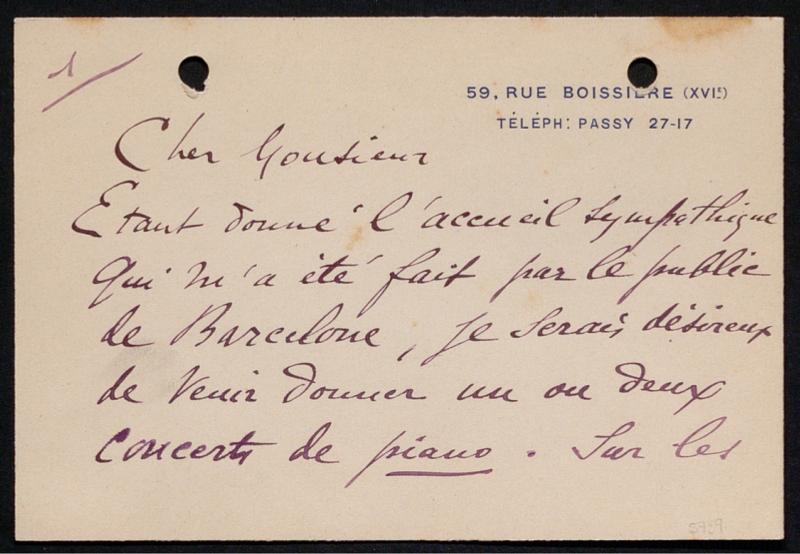 1/
59, RUE BOISSIÈRE (XVIᵉ)
TÉLÉPH: PASSY 27-17
Cher Monsieur
Etant donné l'accueil sympathique
qui m'a été fait par le public
de Barcelone, je serais désireux
de venir donner un ou deux
concerts de piano. Sur les